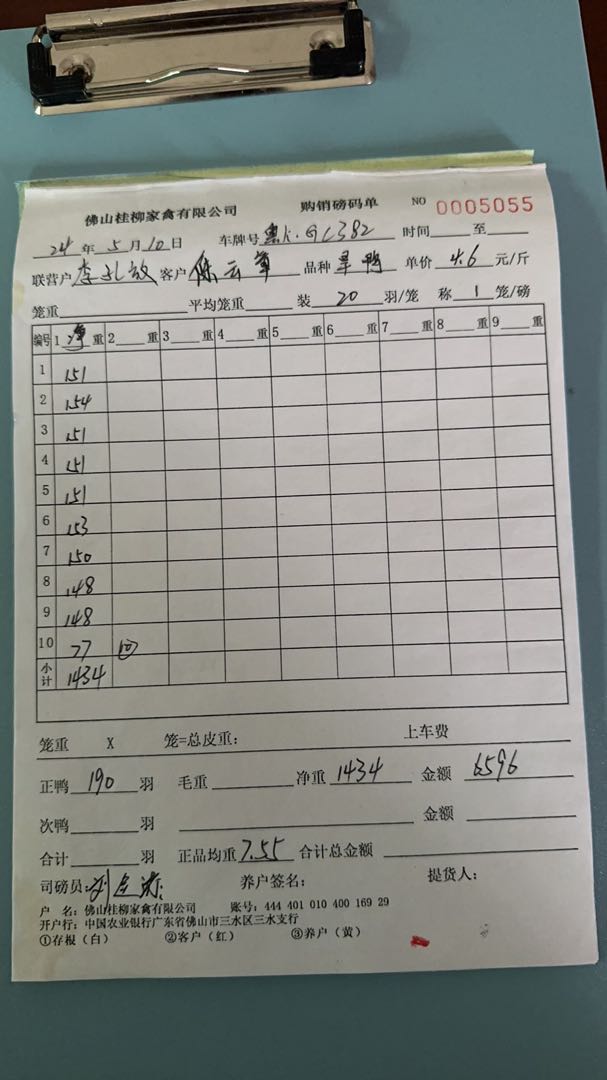 佛山桂柳家禽有限公司 购销磅码单 NO 0005055
24年5月10日 车牌号 GC382 时间 至
联营户 李 客户 陈云 品种 旱鸭 单价 4.6 元/斤
笼重 平均笼重 装 20 羽/笼 称 1 笼/磅
编号 1 净 重 2 重 3 重 4 重 5 重 6 重 7 重 8 重 9 重
1 151
2 154
3 151
4 151
5 151
6 153
7 150
8 148
9 148
10 77 10
小计 1434
笼重 X 笼=总皮重: 上车费
正鸭 190 羽 毛重 净重 1434 金额 6596
次鸭 羽 金额
合计 羽 正品均重 7.55 合计总金额
司磅员: 刘 养户签名: 提货人:
户 名: 佛山桂柳家禽有限公司 账号: 444 401 010 400 169 29
开户行: 中国农业银行广东省佛山市三水区三水支行
①存根（白） ②客户（红） ③养户（黄）